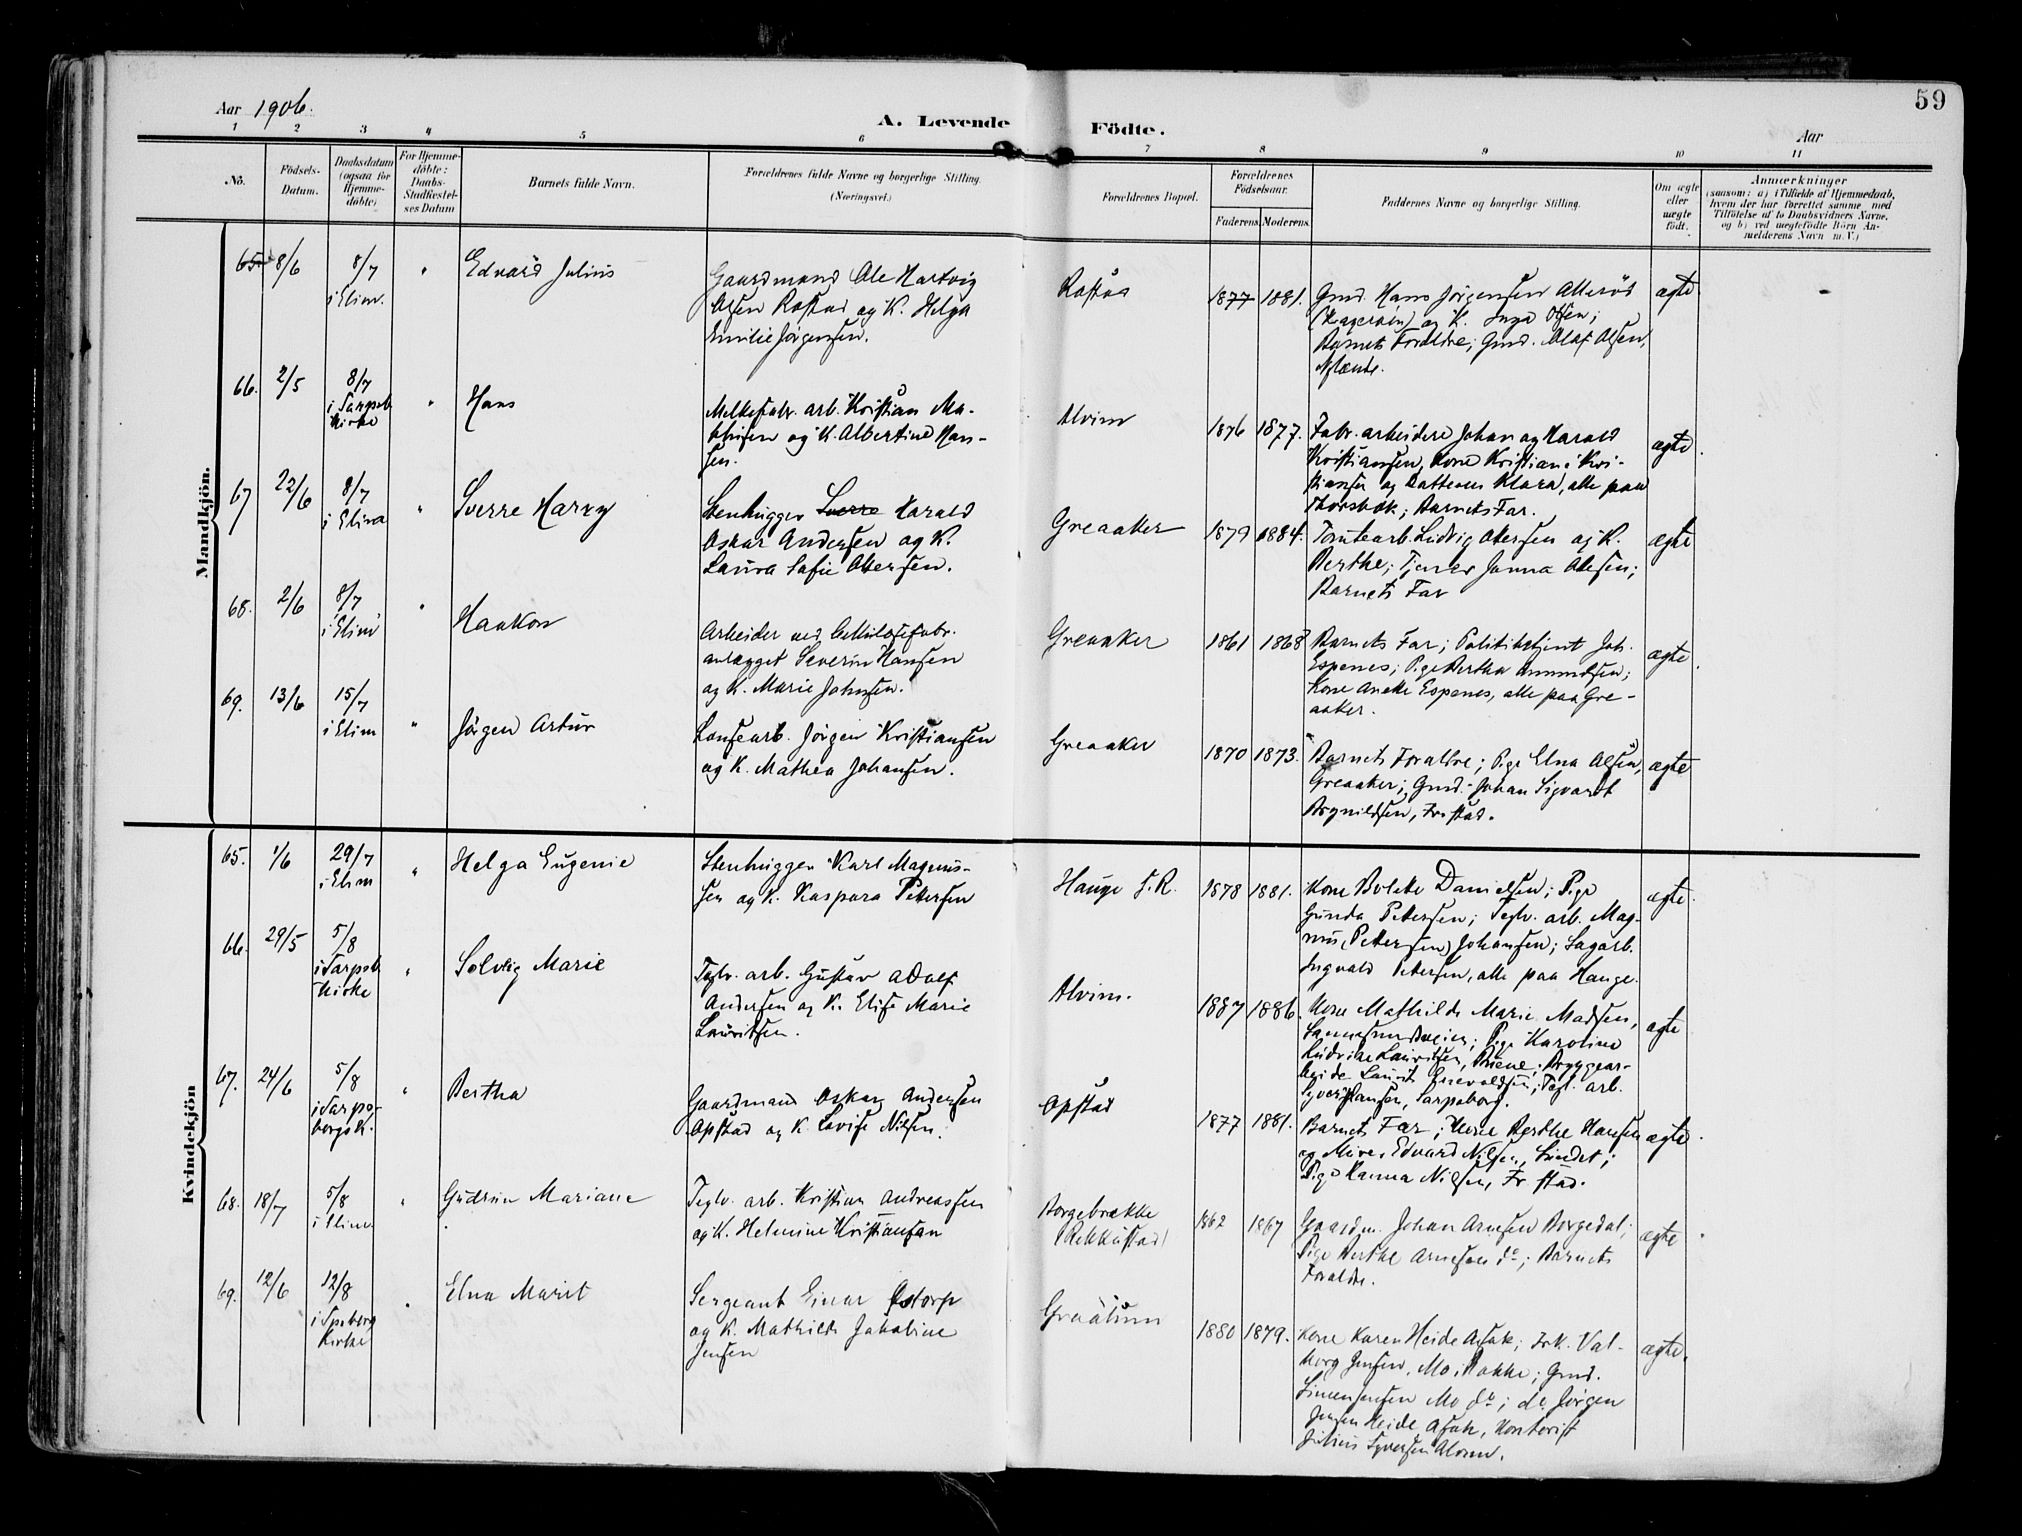 59
Aar 1906.
A. Levende Födte.
Aar
1 2 3 4 5 6 7 8 9 10 11
No.
Födsels-
Datum.
Daabsdatum
(ogsaa for
Hjemme-
döbte)
For Hjemme-
döbte:
Daabs-
Stadfæstel-
ses Datum
Barnets fulde Navn.
Forældrenes fulde Navne og borgerlige Stilling.
(Næringsvei.)
Forældrenes Bopæl.
Forældrenes
Födselsaar.
Faderens. Moderens.
Faddernes Navne og borgerlige Stilling.
Om ægte
eller
uægte
födt.
Anmærkninger
(saasom: a) i Tilfælde af Hjemmedaab,
hvem der har forrettet samme med
Tilföielse af to Daabsvidners Navne.
og b) ved uægtefödte Börn An-
melderens Navn m.V.)
Mandkjön.
65. 8/6
8/7
i Elim.
"
Edvard Julius
Gaardmand Ole Hartvig
Olsen Rostad og K. Helga
Emilie Jørgensen.
Rostad
1877 1881.
Gmd. Hans Jörgensen Allerød
og K. Inga Olsen;
Barnets Forældre; Gmd. Olaf Olsen,
ægte
-
66. 2/5
8/7
i Sarpsb
Kirke
"
Hans
arb. Kristian Ma-
thisen og K. Albertine Han-
sen.
Alvim
1876 1877.
Fabr. arbeidere Johan og Harald
Kristiansen, Kone Kristiane Kri-
stiansen og Datteren Klara, alle paa
Thorsbæk; Barnets Far.
ægte.
67 22/6
8/7
i Elim
"
Sverre Harry
Stenhugger Sverre Harald
Oskar Andersen og K.
Laura Sofie Olsen.
Greaaker
1879 1884.
Tomtearb. Ludvig Olsen og K.
Berthe; Tjener Janna Olsen;
Barnets Far
ægte
68. 2/6
8/7
i Elim
"
Haakon
Arbeider ved Cellulosefabr.
anlægget Severin Hansen
og K. Marie Johnsen.
Greaaker
1861 1868
Barnets Far; Politibetjent Joh.
Espenes; Pige Bertha Amundsen;
Kone Anette Espenes, alle paa Gre-
aaker.
ægte.
69. 13/6
15/7
i Elim
"
Jørgen Artur
Lensearb. Jørgen Kristiansen
og K. Mathea Johansen.
Greaaker
1870 1873.
Barnets Forældre; Pige Elna Olsen,
Greaaker; Gmd. Johan Sigvardt
Brynildsen, Fr.stad.
ægte
Kvindekjön
65. 1/6
29/7
i Elim
"
Helga Eugenie
Stenhugger Karl Magnus-
sen og K. Kaspara Petersen
Hauge i R.
1878 1881.
Kone Bolette Danielsen; Pige
Gunda Petersen; Teglv. arb. Mag-
nus (Petersen) Johansen; Sagarb.
Ingvald Petersen, alle paa Hauge.
ægte.
66. 29/5
5/8
i Sarpsb
Kirke
"
Solveig Marie
Teglv. arb. Gustav Adolf
Andersen og K. Elise Marie
Lauritsen.
Alvim.
1887 1886.
Kone Mathilde Marie Madsen,
Sannesundsveien; Pige Karoline
Ludvikke Lauritsen, Briene; Bryggear-
beide Laurits Enevoldsen; Tegl. arb.
Syver Hansen, Sarpsborg.
ægte
67. 24/6
5/8
i Sarps-
borgs K.
"
Bertha
Gaardmand Oskar Andersen
Opstad og K. Lovise Nilsen.
Opstad
1877 1881.
Barnets Far; Kone Berthe Hansen
og Edvard Nilsen, Sundet;
Pige Hanna Nilsen, Fr.stad.
ægte.
68. 18/7
5/8
i Elim
"
Gudrun Mariane
Teglv. arb. Kristian Andreassen
og K. Helmine Kristiansen
Borgebrække
(Rekkustad)
1862 1867
Gaardm. Johan Arnesen Borgedal;
Pige Berthe Arnesen do; Barnets
Forældre.
ægte
69. 12/6
12/8
i Spsborg
Kirke
"
Elna Marit
Sergeant Einar Opstorp
og K. Mathilde Jakobine
Jensen
Graatum
1880 1879.
Kone Karen Heide Asak; Frk. Val-
borg Jensen, Mo, Rakke; Gmd.
Simen Jensen Mo do; do Jørgen
Jensen Heide Asak, Kontorist
Julius Syversen Alvim.
ægte.